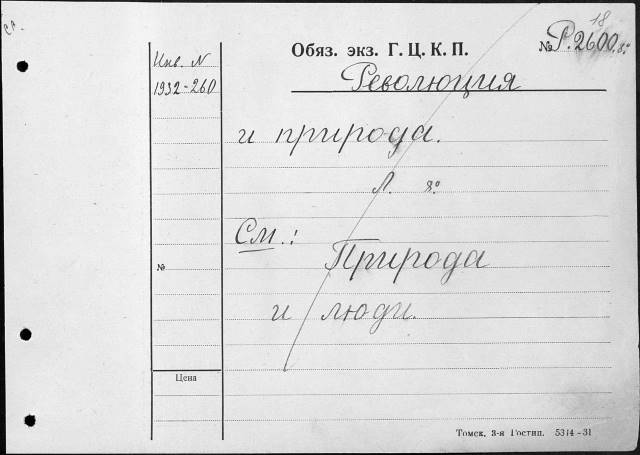 18
Обяз. экз. Г. Ц. К. П. № Р.2600, 8º
Инв. N
1932-260
Революция
и природа.
Л. 8º
См.:
Природа
и люди.
№
Цена
Томск, 3-я Гостип. 5314-31